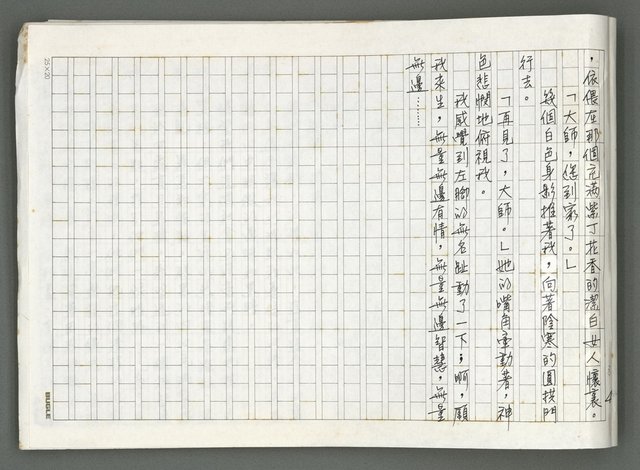 ，依偎在那個充滿紫丁花香的潔白女人懷裏。
「大師，您到家了。」
幾個白色身影推著我，向著陰寒的圓拱門
行去。
「再見了，大師。」她的嘴角牽動著，神
色悲憫地俯視我。
我感覺到左腳的無名趾動了一下；啊，願
我來生，無量無邊有情，無量無邊智慧，無量
無邊………
4
25×20
BUGLE